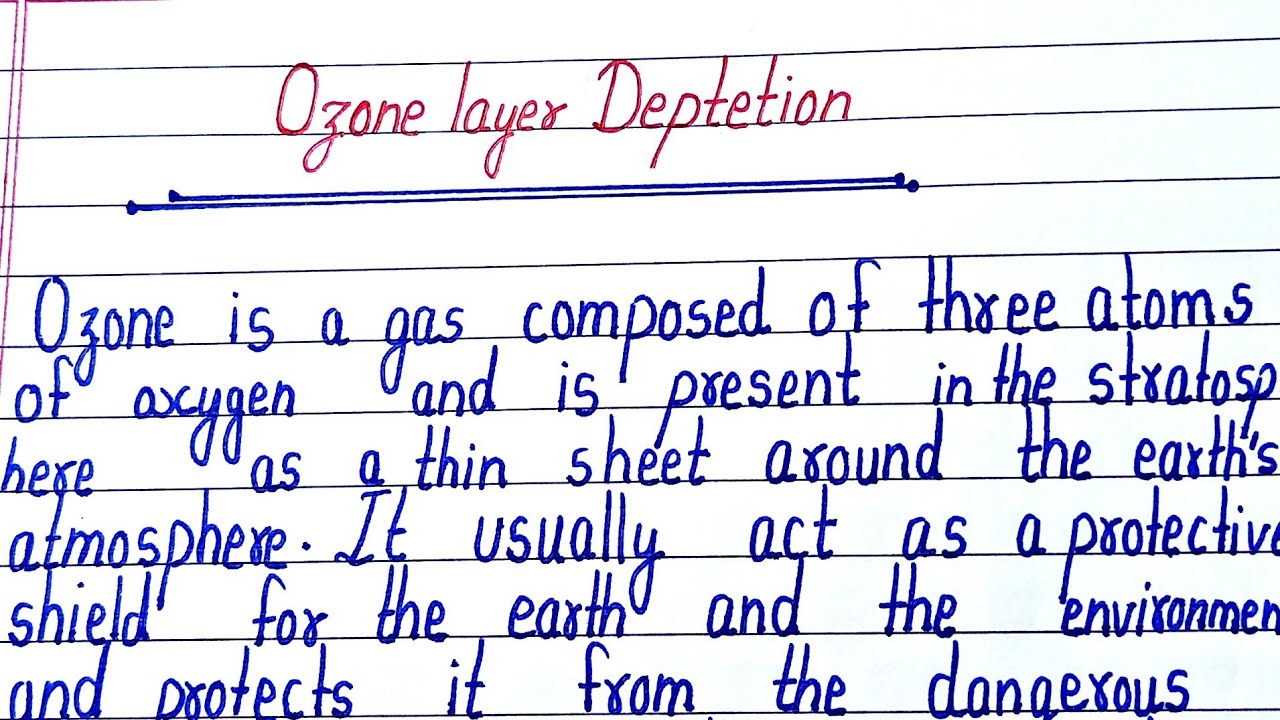 Ozone layer Deptetion
Ozone is a gas composed of three atoms
of oxygen and is present in the stratosp
here as a thin sheet around the earth's
atmosphere. It usually act as a protective
shield for the earth and the environmen
and protects it from the dangerous